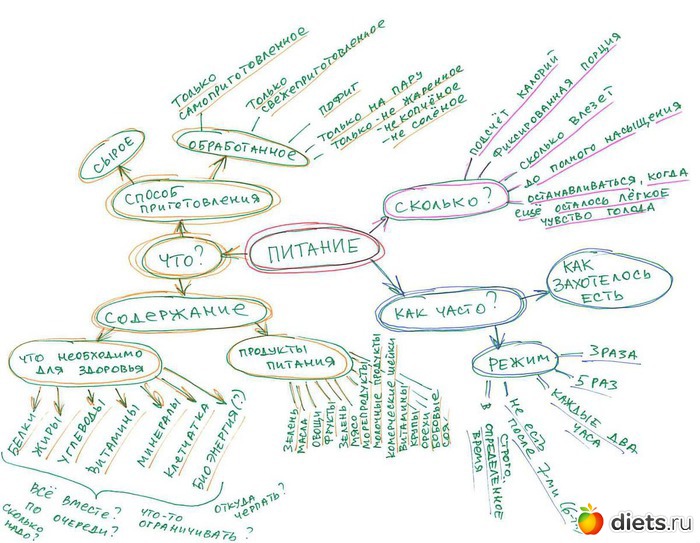 ПИТАНИЕ
ЧТО?
СПОСОБ
ПРИГОТОВЛЕНИЯ
СЫРОЕ
ОБРАБОТАННОЕ
ТОЛЬКО
САМОПРИГОТОВЛЕННОЕ
ТОЛЬКО
СВЕЖЕПРИГОТОВЛЕННОЕ
ПОФИГ
ТОЛЬКО НА ПАРУ
ТОЛЬКО -НЕ ЖАРЕННОЕ
-НЕ КОПЧЁНОЕ
-НЕ СОЛЁНОЕ
СОДЕРЖАНИЕ
ЧТО НЕОБХОДИМО
ДЛЯ ЗДОРОВЬЯ
БЕЛКИ
ЖИРЫ
УГЛЕВОДЫ
ВИТАМИНЫ
МИНЕРАЛЫ
КЛЕТЧАТКА
БИОЭНЕРГИЯ(?)
ВСЁ ВМЕСТЕ?
ПО
ОЧЕРЕДИ?
СКОЛЬКО
НАДО?
ЧТО-ТО
ОГРАНИЧИВАТЬ?
ОТКУДА
ЧЕРПАТЬ?
ПРОДУКТЫ
ПИТАНИЯ
ЗЕЛЕНЬ
МАСЛА
ОВОЩИ
ФРУКТЫ
ЗЕЛЕНЬ
МЯСО
МОРЕПРОДУКТЫ
МОЛОЧНЫЕ ПРОДУКТЫ
КОМЕРЧЕСКИЕ ШЕЙКИ
ВИТАМИНЫ
КРУПЫ
ОРЕХИ
БОБОВЫЕ
СОЯ
СКОЛЬКО?
ПОДСЧЁТ КАЛОРИЙ
ФИКСИРОВАННАЯ ПОРЦИЯ
СКОЛЬКО ВЛЕЗЕТ
ДО ПОЛНОГО НАСЫЩЕНИЯ
ОСТАНАВЛИВАТЬСЯ, КОГДА
ЕЩЁ ОСТАЛОСЬ ЛЁГКОЕ
ЧУВСТВО ГОЛОДА
КАК ЧАСТО?
КАК
ЗАХОТЕЛОСЬ
ЕСТЬ
РЕЖИМ
3 РАЗА
5 РАЗ
КАЖДЫЕ ДВА
ЧАСА
НЕ ЕСТЬ
ПОСЛЕ 7-МИ (6-
СТРОГО
В ОПРЕДЕЛЕННОЕ
ВРЕМЯ
diets.ru